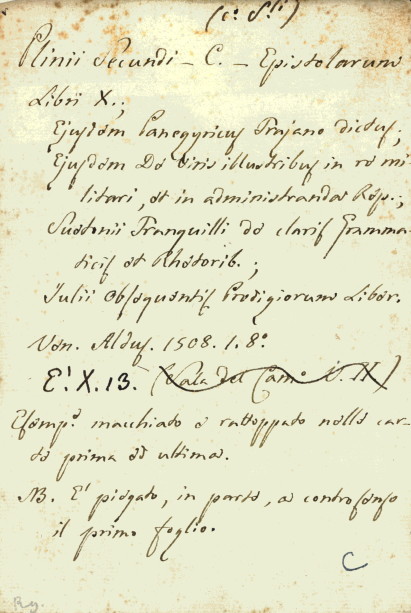 (c. S.ti)
Plinii Secundi - C. - Epistolarum
Libri X.;
Ejusdem Panegyricus Trajano dictus;
Ejusdem De Viris illustribus in re mi-
litari, et in administranda Rep.;
Suetonii Tranquilli de claris Gramma-
ticis et Rhetorib.;
Iulii Obsequentis Prodigiorum Liber.
Ven. Aldus. 1508. 1. 8.o
E.' X. 13. (Sala del Cam.o V. H)
Esemp.e macchiato e rattoppato nelle car-
te prima ed ultima.
NB. E' piegato, in parte, a controsenso
il primo foglio.
C
Ry.